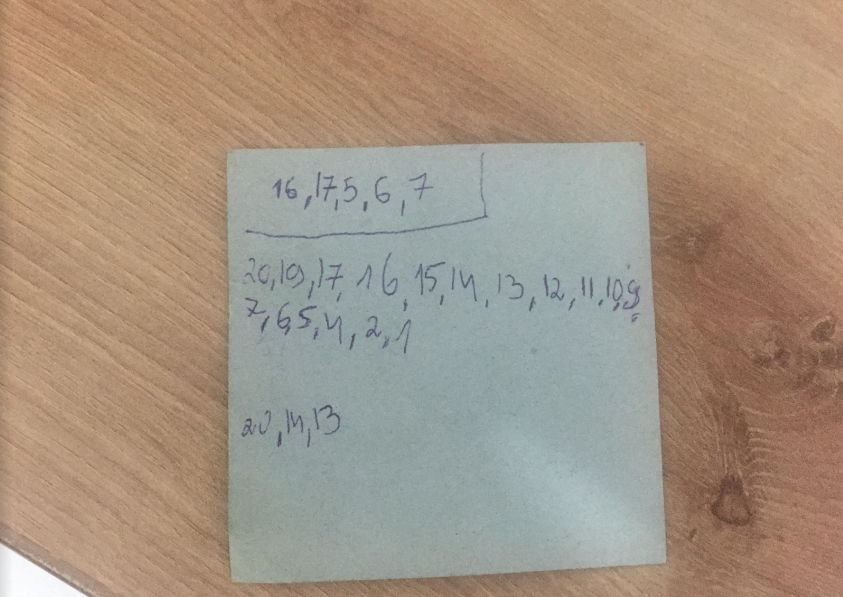 16,17,5,6,7
20,19,17,16,15,14,13,12,11,10,9
7,6,5,4,2,1
20,14,13